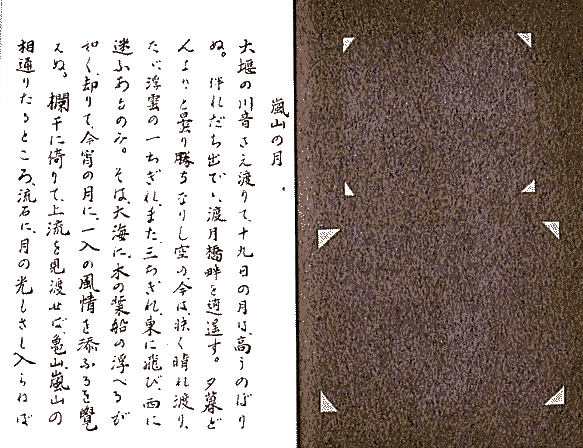 嵐山の月。
大堰の川音さえ渡りて、十九日の月は、高うのぼり
ぬ。伴れだち出でゝ、渡月橋畔を逍遥す。夕暮ど
んよりと曇り勝ちなりし空の、今は、快く晴れ渡り、
たゞ浮雲の一ちぎれ、また、三ちぎれ、東に飛び、西に
迷ふあるのみ。そは、大海に、木の葉船の浮べるが
如く、却りて、今宵の月に、一入の風情を添ふるを覺
えぬ。欄干に倚りて、上流を見渡せば、亀山、嵐山の
相連りたるところ、流石に、月の光もさし入らねば